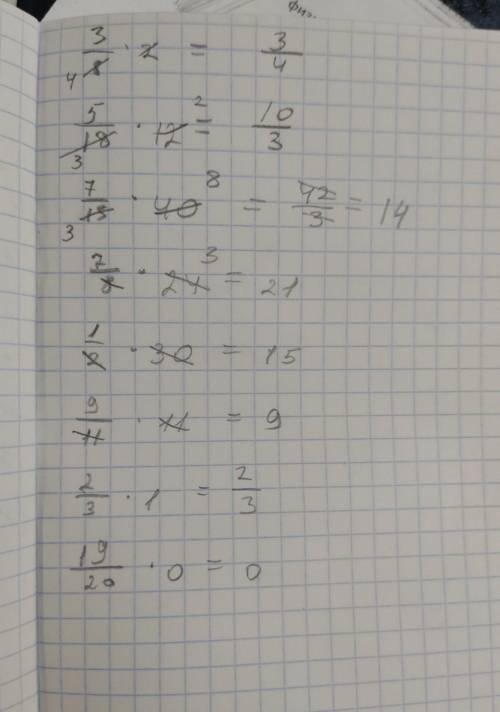 Физ.
3/8 4 · 2 = 3/4
5/18 3 · 12 2 = 10/3
7/15 3 · 40 8 = 42/3 = 14
7/8 · 24 3 = 21
1/2 · 30 = 15
9/11 · 11 = 9
2/3 · 1 = 2/3
19/20 · 0 = 0